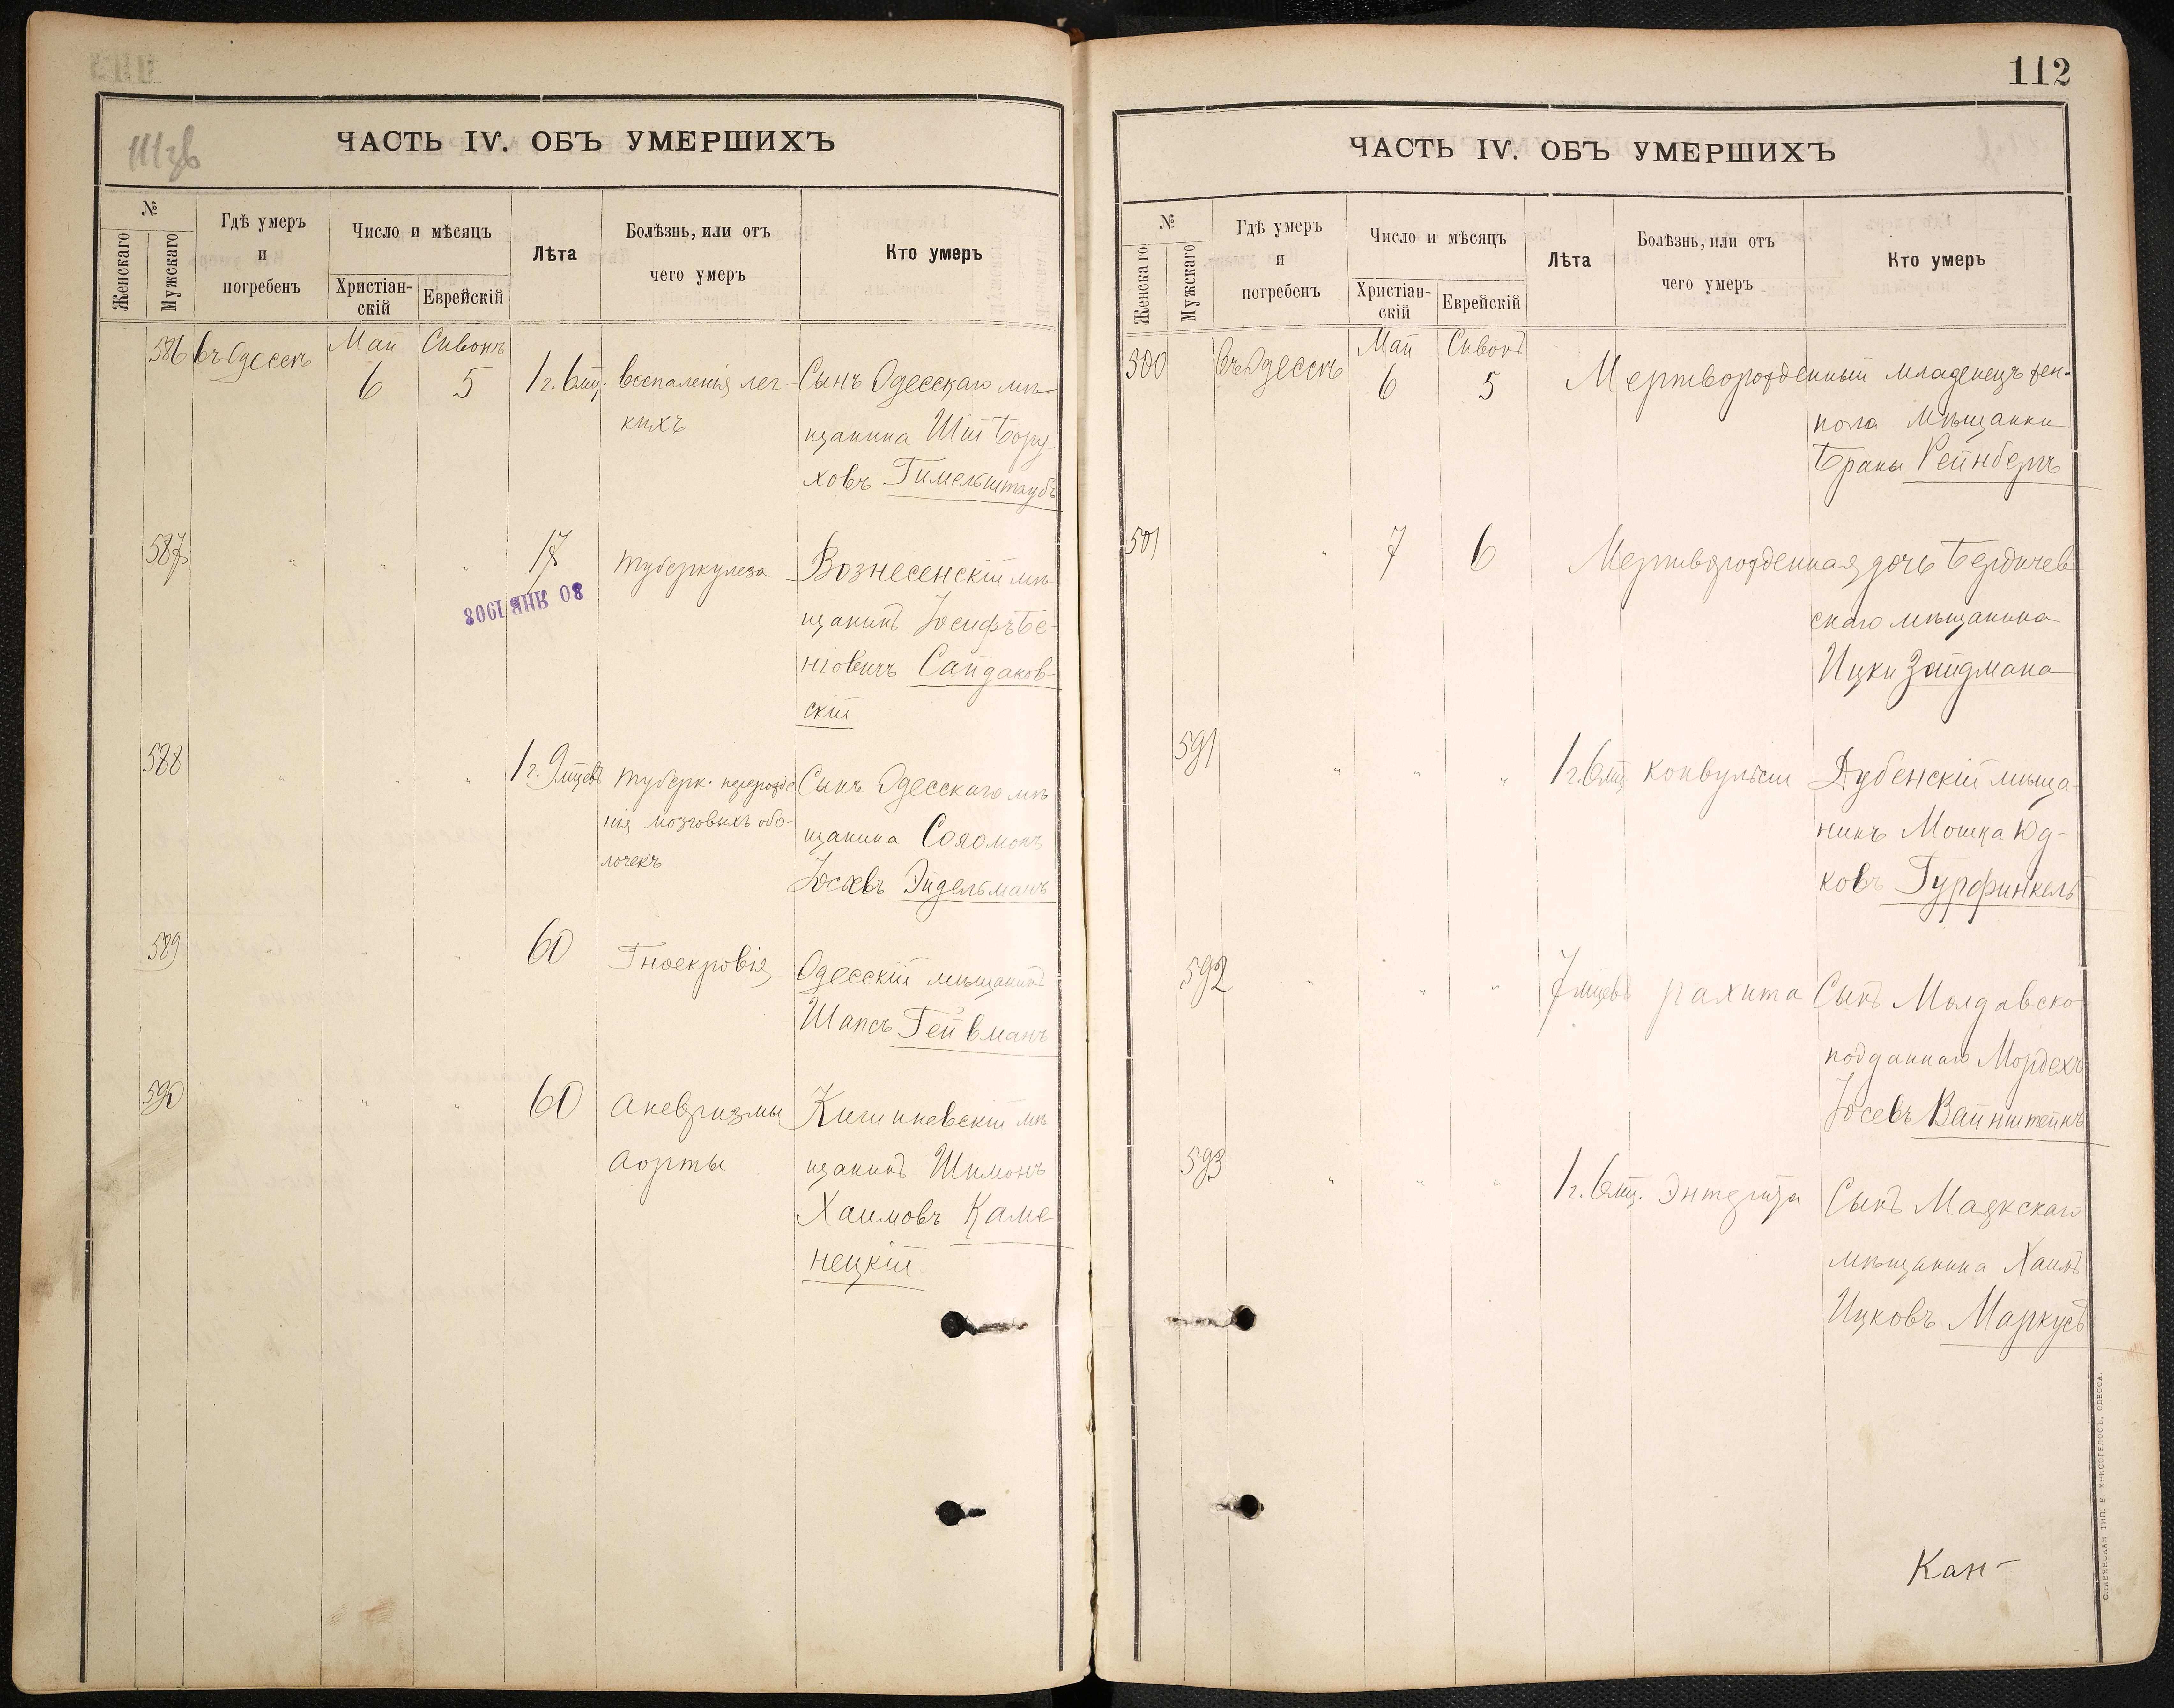 111 об
ЧАСТЬ IV. ОБЪ УМЕРШИХЪ
№
Женскаго
Мужскаго
Гдѣ умеръ
и
погребенъ
Число и мѣсяцъ
Христіан-
скій
Еврейскій
Лѣта
Болѣзнь, или отъ
чего умеръ
Кто умеръ
586 въ Одессѣ Май 6 Сивонъ 5 1 г. 6 мц. воспаленія лег-
кихъ
Сынъ Одесскаго мѣ-
щанина Шіи Бору-
ховъ Гимельштаубъ
587 " " " 17 туберкулеза
Вознесенскій мѣ-
щанинъ Іосифъ Бе-
ніовичъ Сайдаков-
скій
30 ЯНВ 1903
588 " " " 1 г. 9 мцевъ туберк. перерожде
нія мозговыхъ обо-
лочекъ
Сынъ Одесскаго мѣ
щанина Соломонъ
Іосевъ Эйдельманъ
589 " " " 60 Гноекровія
Одесскій мѣщанинъ
Шапсъ Гейвманъ
590 " " " 60 Аневризмы
Аорты
Кишиневскій мѣ
щанинъ Шимонъ
Хаимовъ Каме
нецкій
112
ЧАСТЬ IV. ОБЪ УМЕРШИХЪ
№
Женскаго
Мужскаго
Гдѣ умеръ
и
погребенъ
Число и мѣсяцъ
Христіан-
скій
Еврейскій
Лѣта
Болѣзнь, или отъ
чего умеръ
Кто умеръ
500 въ Одессѣ Май 6 Сивонъ 5 Мертворожденный младенецъ жен.
пола мѣщанки
Браны Рейнбергъ
501 " 7 6 Мертворожденная дочь Бердичев
скаго мѣщанина
Ицки Зайдмана
591 " " " 1 г. 6 мц конвульсіи
Дубенскій мѣща-
нинъ Мошка Юд-
ковъ Гурфинкель
592 " " " 7 мцевъ рахита
Сынъ Молдавско
подданнаго Мордехъ
Іосевъ Вайнштейнъ
593 " " " 1 г. 6 мц. Энтерита
Сынъ Маякскаго
мѣщанина Хаимъ
Ицковъ Маркусъ
Кан-
СЛАВЯНСКАЯ ТИП. Е. ХРИСОГЕЛОСЪ, ОДЕССА.